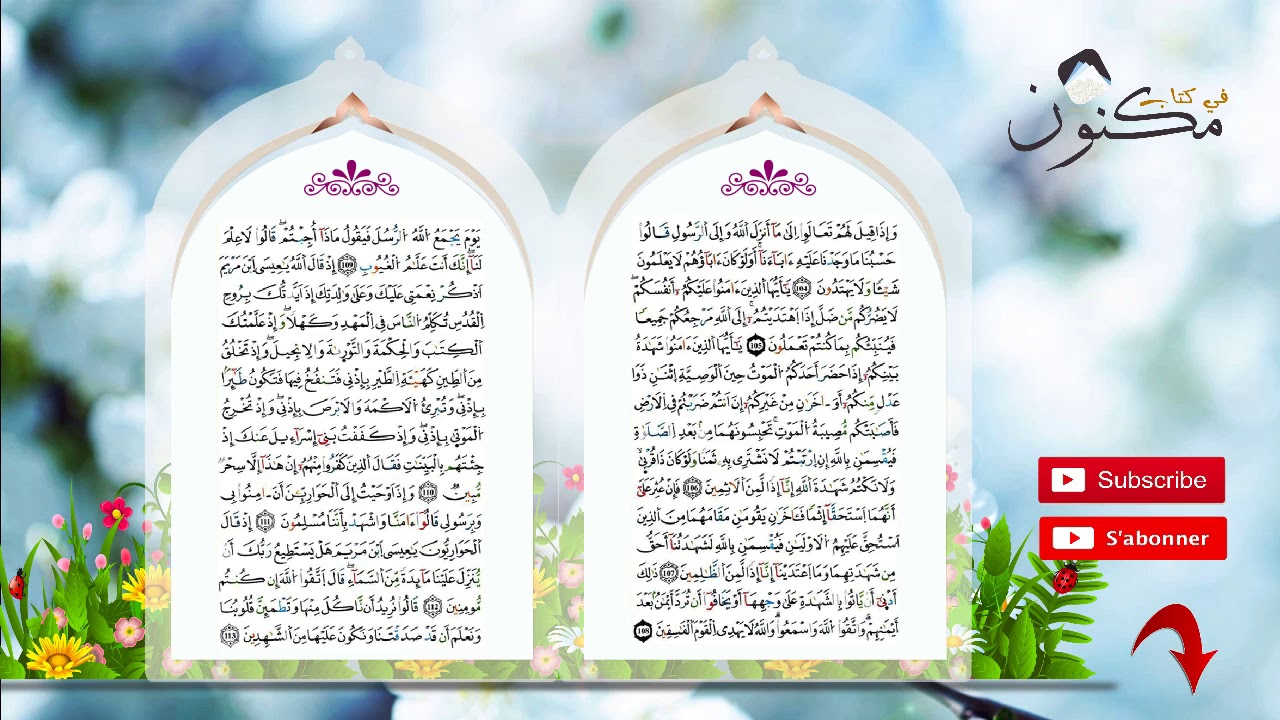 وَإِذَا قِيلَ لَهُمْ تَعَالَوِاْ اِلَىٰ مَآ أَنزَلَ اَ۬للَّهُ وَإِلَى اَ۬لرَّسُولِ قَالُواْ
حَسْبُنَا مَا وَجَدْنَا عَلَيْهِ ءَابَآءَنَآۖ أَوَلَوْ كَانَ ءَابَآؤُهُمْ لَا يَعْلَمُونَ
شَيْـٔاً وَلَا يَهْتَدُونَ 104 يَٰٓأَيُّهَا اَ۬لذِينَ ءَامَنُواْ عَلَيْكُمُۥٓ أَنفُسَكُمْ
لَا يَضُرُّكُم مَّن ضَلَّ إِذَا اَ۪هْتَدَيْتُمُۥٓۖ إِلَى اَ۬للَّهِ مَرْجِعُكُمْ جَمِيعاً
فَيُنَبِّئُكُم بِمَا كُنتُمْ تَعْمَلُونَ 105 يَٰٓأَيُّهَا اَ۬لذِينَ ءَامَنُواْ شَهَٰدَةُ
بَيْنِكُمُۥٓ إِذَا حَضَرَ أَحَدَكُمُ اُ۬لْمَوْتُ حِينَ اَ۬لْوَصِيَّةِ اِ۪ثْنَٰنِ ذَوَا
عَدْلٖ مِّنكُمُۥٓ أَوَ اٰخَرَٰنِ مِنْ غَيْرِكُمُۥٓ إِنَ اَنتُمْ ضَرَبْتُمْ فِي اِ۬لَارْضِ
فَأَصَٰبَتْكُم مُّصِيبَةُ اُ۬لْمَوْتِۖ تَحْبِسُونَهُمَا مِنۢ بَعْدِ اِ۬لصَّلَوٰةِ
فَيُقْسِمَٰنِ بِاللَّهِ إِنِ اِ۪رْتَبْتُمْ لَا نَشْتَرِي بِهِۦ ثَمَناً وَلَوْ كَانَ ذَا قُرْبَىٰ
وَلَا نَكْتُمُ شَهَٰدَةَ اَ۬للَّهِ إِنَّآ إِذاً لَّمِنَ اَ۬لَاثِمِينَ 106 فَإِنْ عُثِرَ عَلَىٰٓ
أَنَّهُمَا اَ۪سْتَحَقَّآ إِثْماً فَـَٔاخَرَٰنِ يَقُومَٰنِ مَقَامَهُمَا مِنَ اَ۬لذِينَ
اَ۟سْتُحِقَّ عَلَيْهِمُ اُ۬لَاوْلَيَٰنِ فَيُقْسِمَٰنِ بِاللَّهِ لَشَهَٰدَتُنَآ أَحَقُّ
مِن شَهَٰدَتِهِمَا وَمَا اَ۪عْتَدَيْنَآ إِنَّآ إِذاً لَّمِنَ اَ۬لظَّٰلِمِينَ 107 ذَٰلِكَ
أَدْنَىٰٓ أَنْ يَّاتُواْ بِالشَّهَٰدَةِ عَلَىٰ وَجْهِهَآ أَوْ يَخَافُوٓاْ أَن تُرَدَّ أَيْمَٰنُۢ بَعْدَ
أَيْمَٰنِهِمْۖ وَاتَّقُواْ اُ۬للَّهَ وَاسْمَعُواْۖ وَاللَّهُ لَا يَهْدِي اِ۬لْقَوْمَ اَ۬لْفَٰسِقِينَ 108
يَوْمَ يَجْمَعُ اُ۬للَّهُ اُ۬لرُّسُلَ فَيَقُولُ مَاذَآ أُجِبْتُمْۖ قَالُواْ لَا عِلْمَ
لَنَآۖ إِنَّكَ أَنتَ عَلَّٰمُ اُ۬لْغُيُوبِ 109 إِذْ قَالَ اَ۬للَّهُ يَٰعِيسَى اَ۪بْنَ مَرْيَمَ
اَ۟ذْكُرْ نِعْمَتِي عَلَيْكَ وَعَلَىٰ وَٰلِدَتِكَ إِذَ اَيَّدتُّكَ بِرُوحِ
اِ۬لْقُدُسِ تُكَلِّمُ اُ۬لنَّاسَ فِي اِ۬لْمَهْدِ وَكَهْلاًۖ وَإِذْ عَلَّمْتُكَ
اَ۬لْكِتَٰبَ وَالْحِكْمَةَ وَالتَّوْرَىٰةَ وَالِانجِيلَۖ وَإِذْ تَخْلُقُ
مِنَ اَ۬لطِّينِ كَهَيْـَٔةِ اِ۬لطَّيْرِ بِإِذْنِي فَتَنفُخُ فِيهَا فَتَكُونُ طَٰٓئِراَۢ
بِإِذْنِيۖ وَتُبْرِئُ اُ۬لَاكْمَهَ وَالَابْرَصَ بِإِذْنِيۖ وَإِذْ تُخْرِجُ
اُ۬لْمَوْتَىٰ بِإِذْنِيۖ وَإِذْ كَفَفْتُ بَنِيٓ إِسْرَآءِيلَ عَنكَ إِذْ
جِئْتَهُم بِالْبَيِّنَٰتِ فَقَالَ اَ۬لذِينَ كَفَرُواْ مِنْهُمُۥٓ إِنْ هَٰذَآ إِلَّا سِحْرٞ
مُّبِينٞ 110 وَإِذَ اَوْحَيْتُ إِلَى اَ۬لْحَوَارِيِّـۧنَ أَنَ اٰمِنُواْ بِي
وَبِرَسُولِي قَالُوٓاْ ءَامَنَّا وَاشْهَدْ بِأَنَّنَا مُسْلِمُونَ 111 إِذْ قَالَ
اَ۬لْحَوَارِيُّونَ يَٰعِيسَى اَ۪بْنَ مَرْيَمَ هَلْ يَسْتَطِيعُ رَبُّكَ أَنْ
يُّنَزِّلَ عَلَيْنَا مَآئِدَةٗ مِّنَ اَ۬لسَّمَآءِۖ قَالَ اَ۪تَّقُواْ اُ۬للَّهَ إِن كُنتُم
مُّومِنِينَ 112 قَالُواْ نُرِيدُ أَن نَّاكُلَ مِنْهَا وَتَطْمَئِنَّ قُلُوبُنَا
وَنَعْلَمَ أَن قَدْ صَدَقْتَنَا وَنَكُونَ عَلَيْهَا مِنَ اَ۬لشَّٰهِدِينَ 113
في كتاب
مكنون
Subscribe
S'abonner